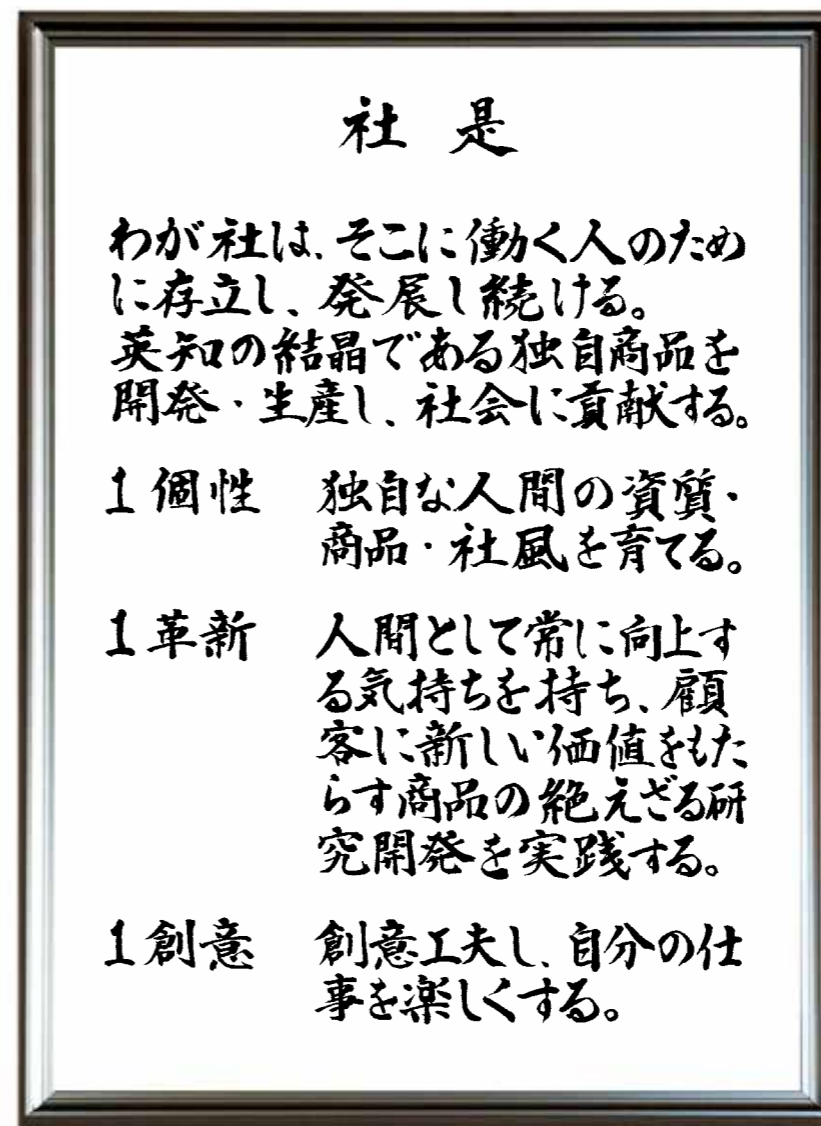 社是
わが社は、そこに働く人のため
に存立し、発展し続ける。
英知の結晶である独自商品を
開発・生産し、社会に貢献する。
1 個性 独自な人間の資質・
商品・社風を育てる。
1 革新 人間として常に向上す
る気持ちを持ち、顧
客に新しい価値をもた
らす商品の絶えざる研
究開発を実践する。
1 創意 創意工夫し、自分の仕
事を楽しくする。